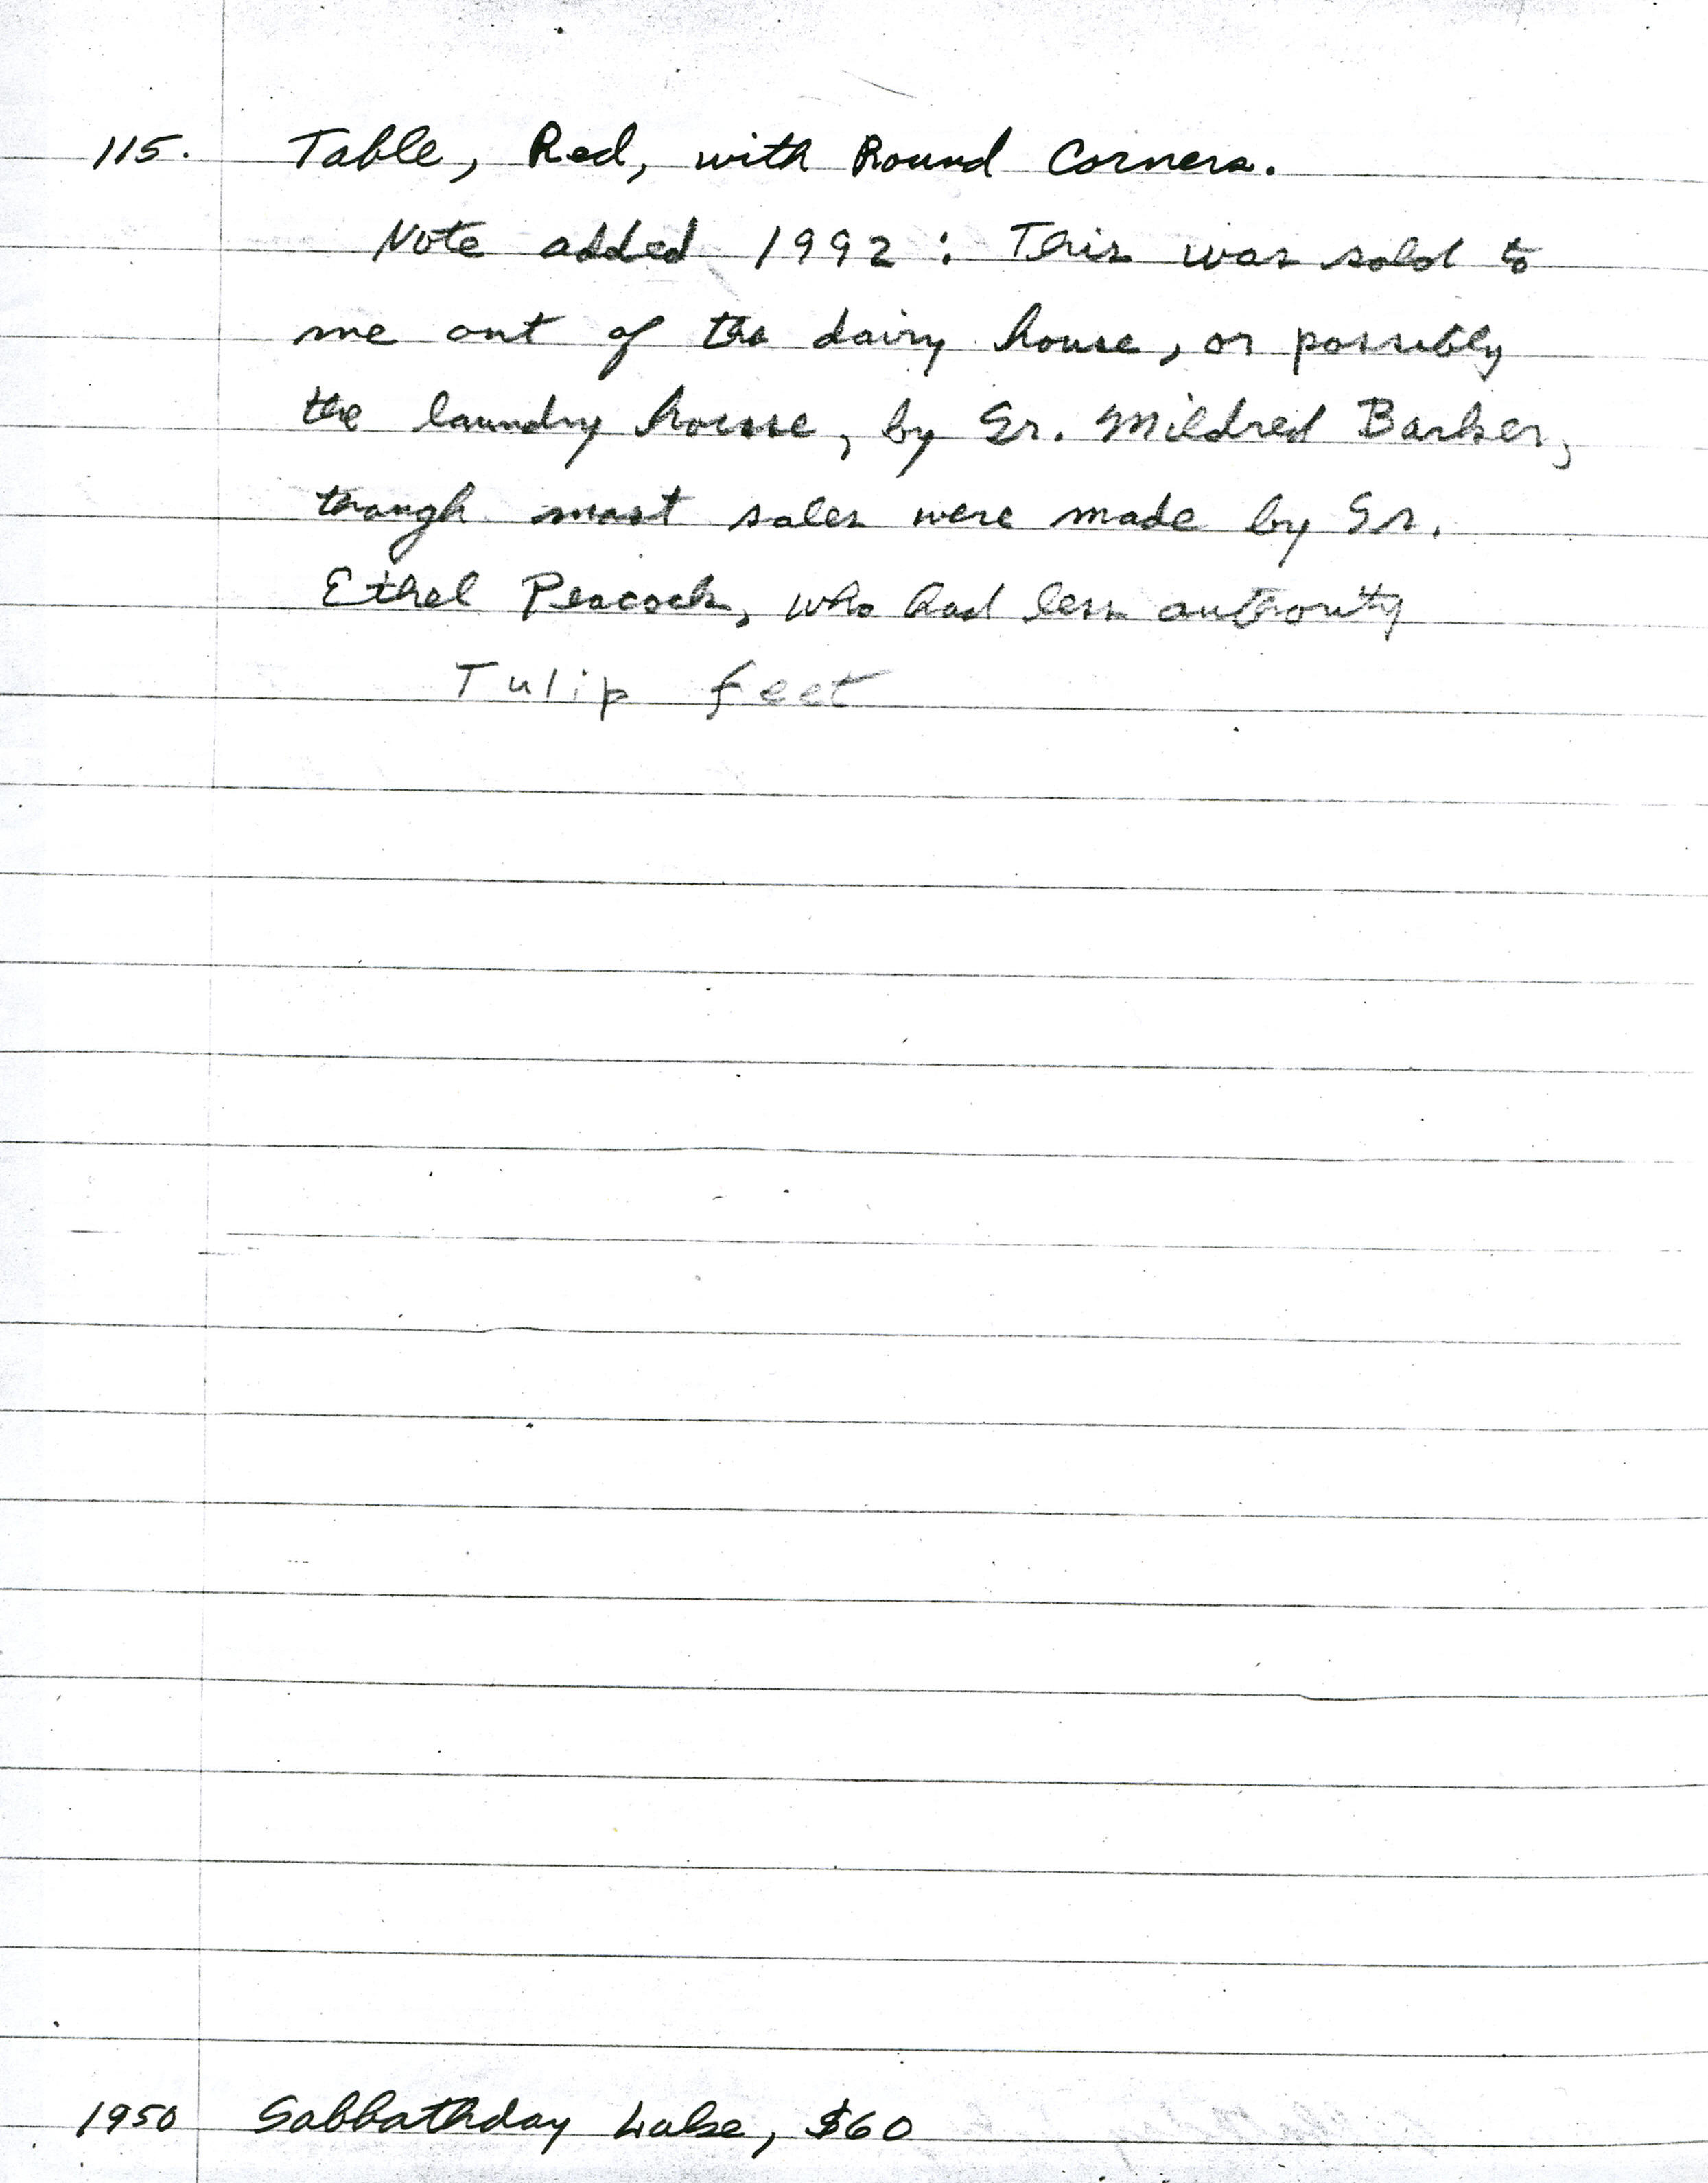 115. Table, Red, with Round Corners.
Note added 1992: This was sold to
me out of the dairy house, or possibly
the laundry house, by Sr. Mildred Barker,
though most sales were made by Sr.
Ethel Peacock, who had less authority
Tulip feet
1950 Sabbathday Lake, $60